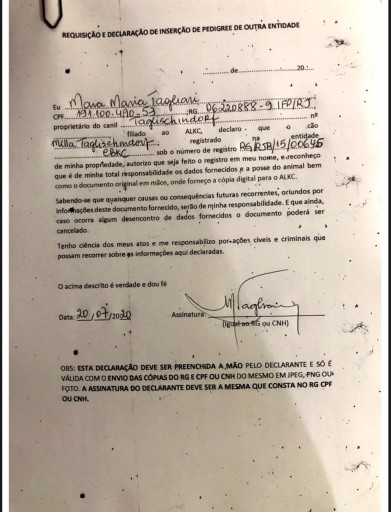 REQUISIÇÃO E DECLARAÇÃO DE INSERÇÃO DE PEDIGREE DE OUTRA ENTIDADE
de 20
Eu Mara Maria Tagliari
CPF 191.100.490-53 RG 06220888-9 IFP/RJ nº
proprietário do canil Taglischindorf
filiado ao ALKC, declaro que o cão
Milla Taglischindorf registrado na entidade
CBKC sob o número de registro RG/RSB/15/00645
de minha propriedade, autorizo que seja feito o registro em meu nome, e reconheço
que é de minha total responsabilidade os dados fornecidos e a posse do animal bem
como o documento original em mãos, onde forneço a cópia digital para o ALKC.
Sabendo-se que quaisquer causas ou consequências futuras recorrentes, oriundos por
informações deste documento fornecido, serão de minha responsabilidade. E que ainda,
caso ocorra algum desencontro de dados fornecidos o documento poderá ser
cancelado.
Tenho ciência dos meus atos e me responsabilizo por ações cíveis e criminais que
possam recorrer sobre as informações aqui declaradas.
O acima descrito é verdade e dou fé
Data: 20/07/2020 Assinatura: MTagliari
(Igual ao RG ou CNH)
OBS: ESTA DECLARAÇÃO DEVE SER PREENCHIDA A MÃO PELO DECLARANTE E SÓ É
VÁLIDA COM O ENVIO DAS CÓPIAS DO RG E CPF OU CNH DO MESMO EM JPEG, PNG OU
FOTO. A ASSINATURA DO DECLARANTE DEVE SER A MESMA QUE CONSTA NO RG CPF
OU CNH.